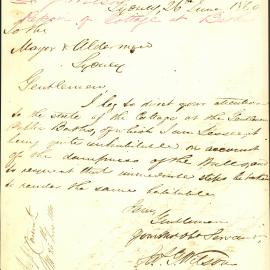 Sydney 26th June 1860
Cottage at Baths
To the
Mayor & Aldermen
Sydney
Gentlemen
I beg to direct your attention
to the state of the Cottage at the Gentlemen
Public Baths, of which I am Lessee, it
being quite uninhabitable on account
of the dampness of the Walls, and
to request that immediate steps be taken
to render the same habitable
Gentlemen
Your Most Obt Servant
Wilson